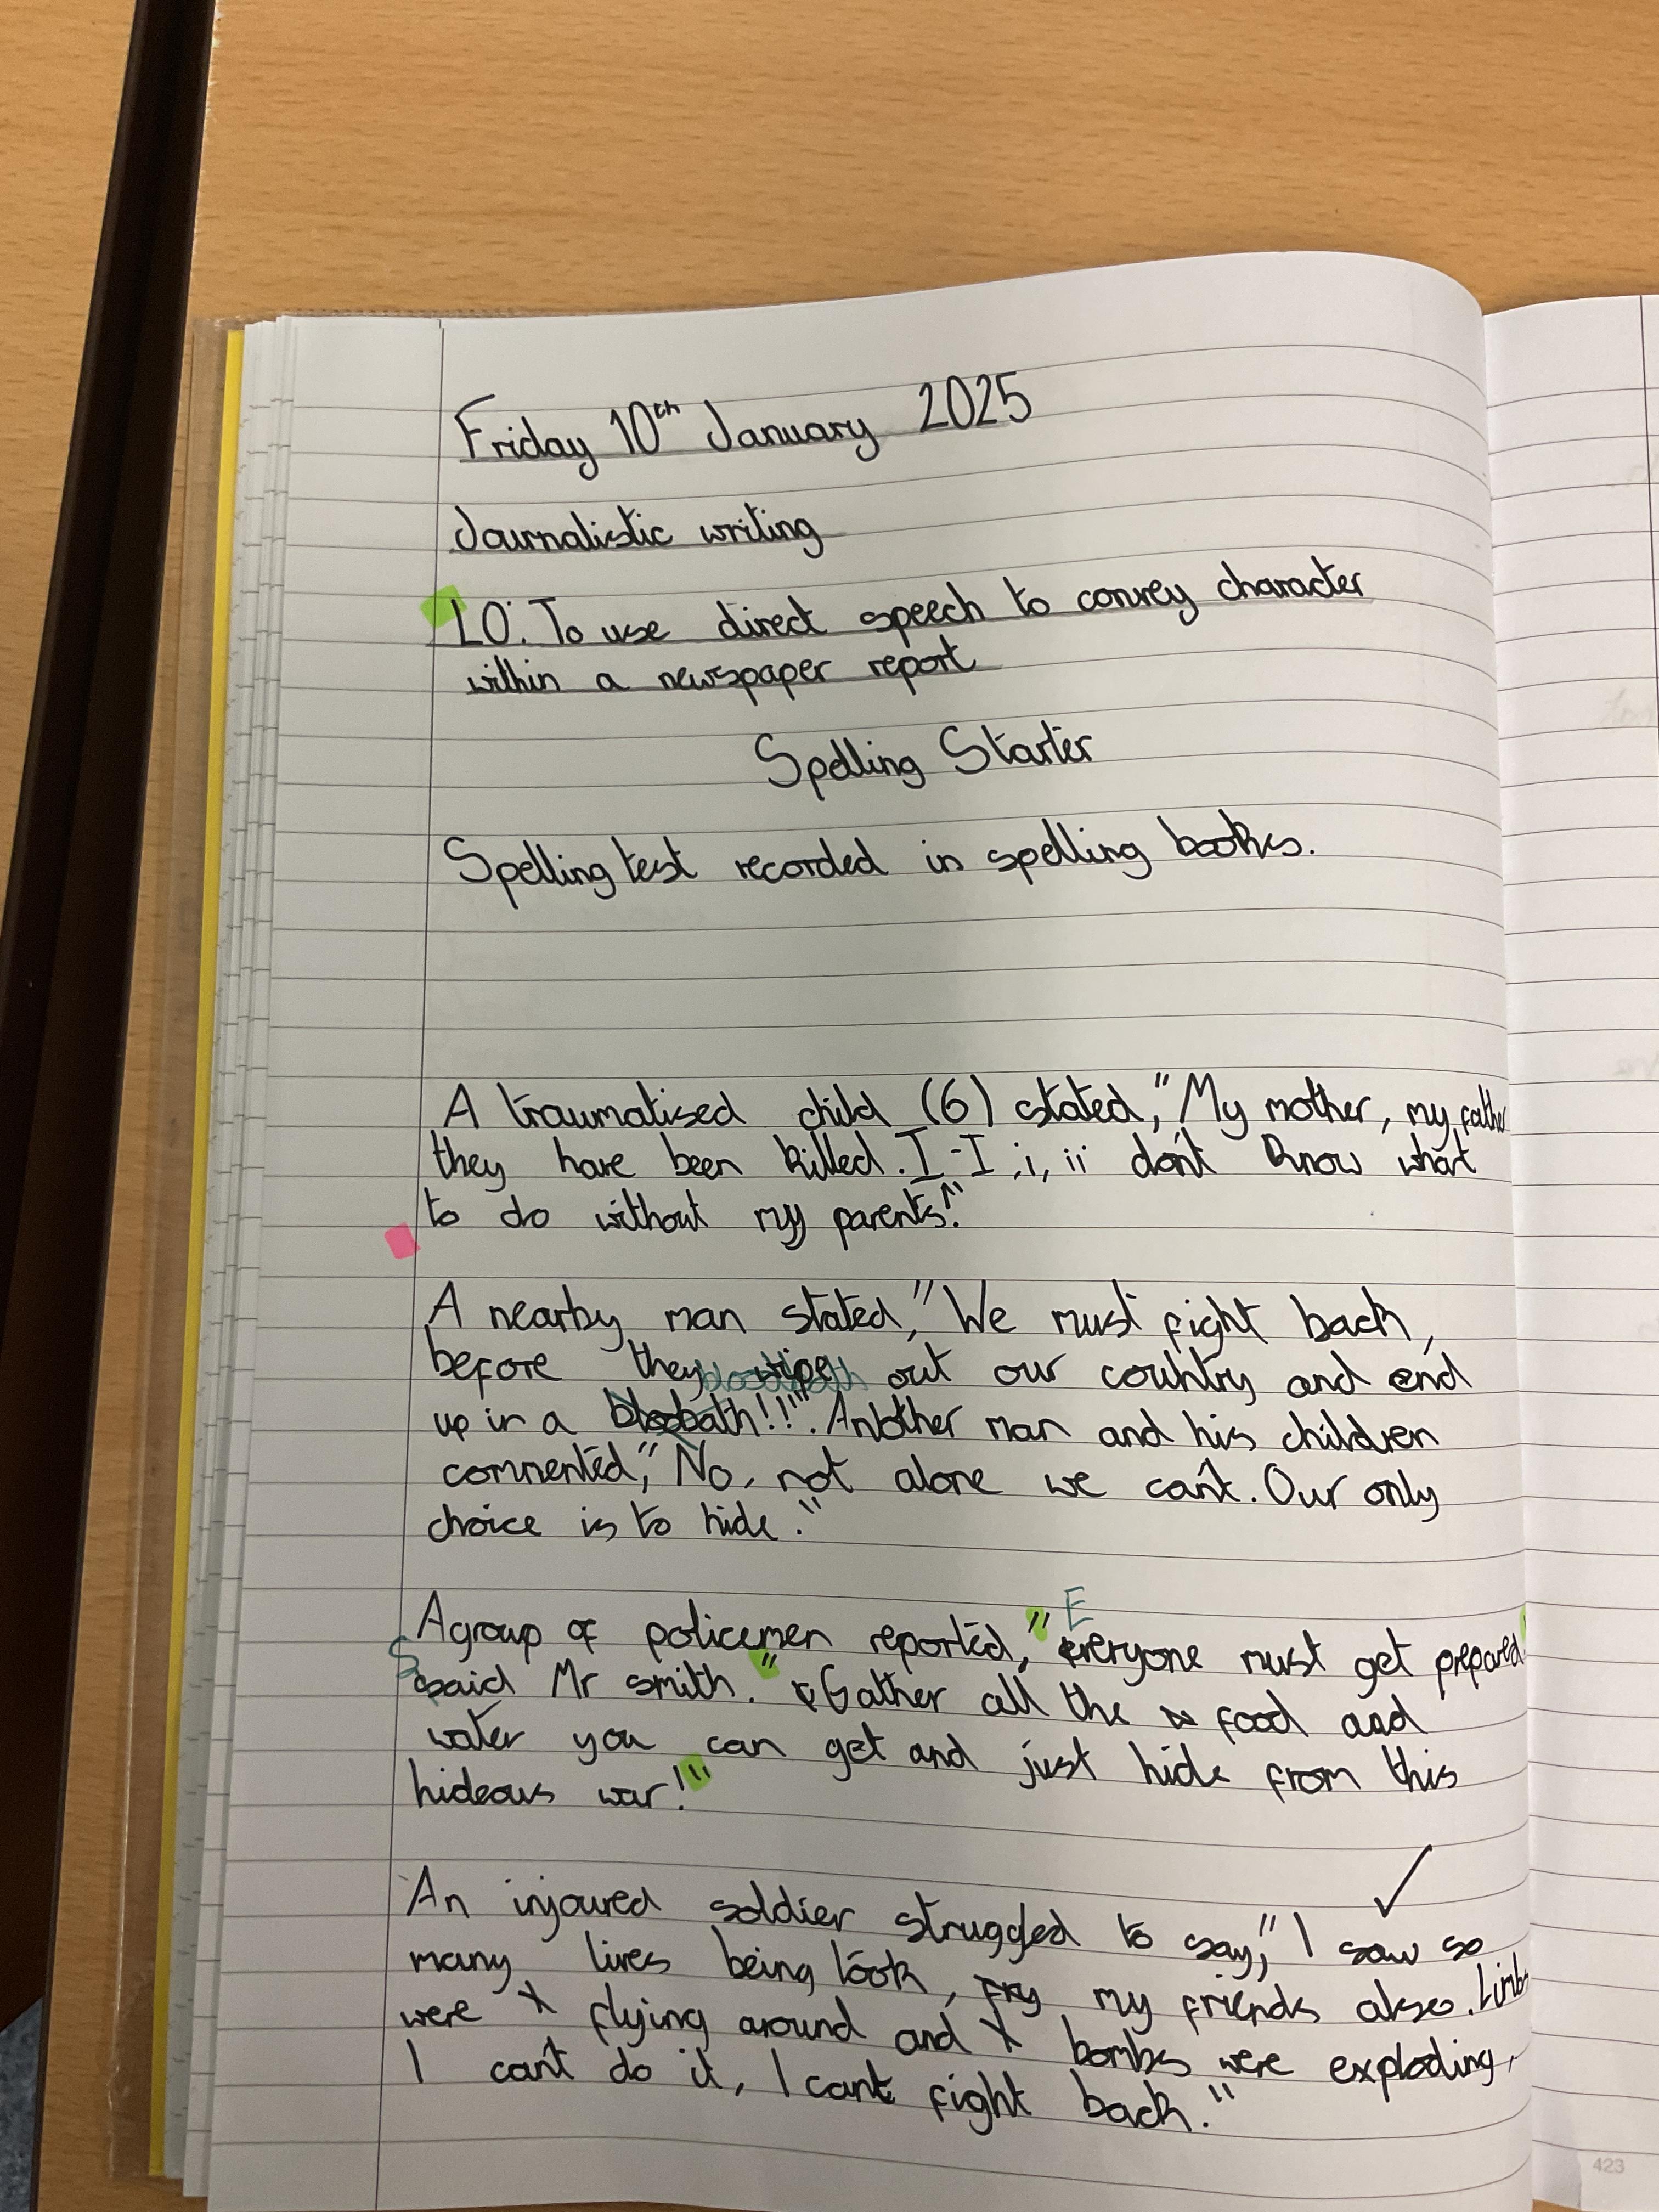 Friday 10th January 2025
Journalistic writing
LO: To use direct speech to convey character
within a newspaper report
Spelling Starter
Spelling test recorded in spelling books.
A traumatised child (6) stated, "My mother, my father
they have been killed. I-I ,i, ii don't know what
to do without my parents!"
A nearby man stated, "We must fight back,
before they wipe out our country and end
up in a bloobath!!". Another man and his children
commented, "No, not alone we can't. Our only
choice is to hide."
E
A group of policemen reported, "everyone must get prepared
Said Mr smith. "Gather all the food and
water you can get and just hide from this
hideous war!"
An injoured soldier struggled to say, "I saw so
many lives being took, my friends also. Limbs
were flying around and bombs were exploding,
I can't do it, I cant fight back."
423